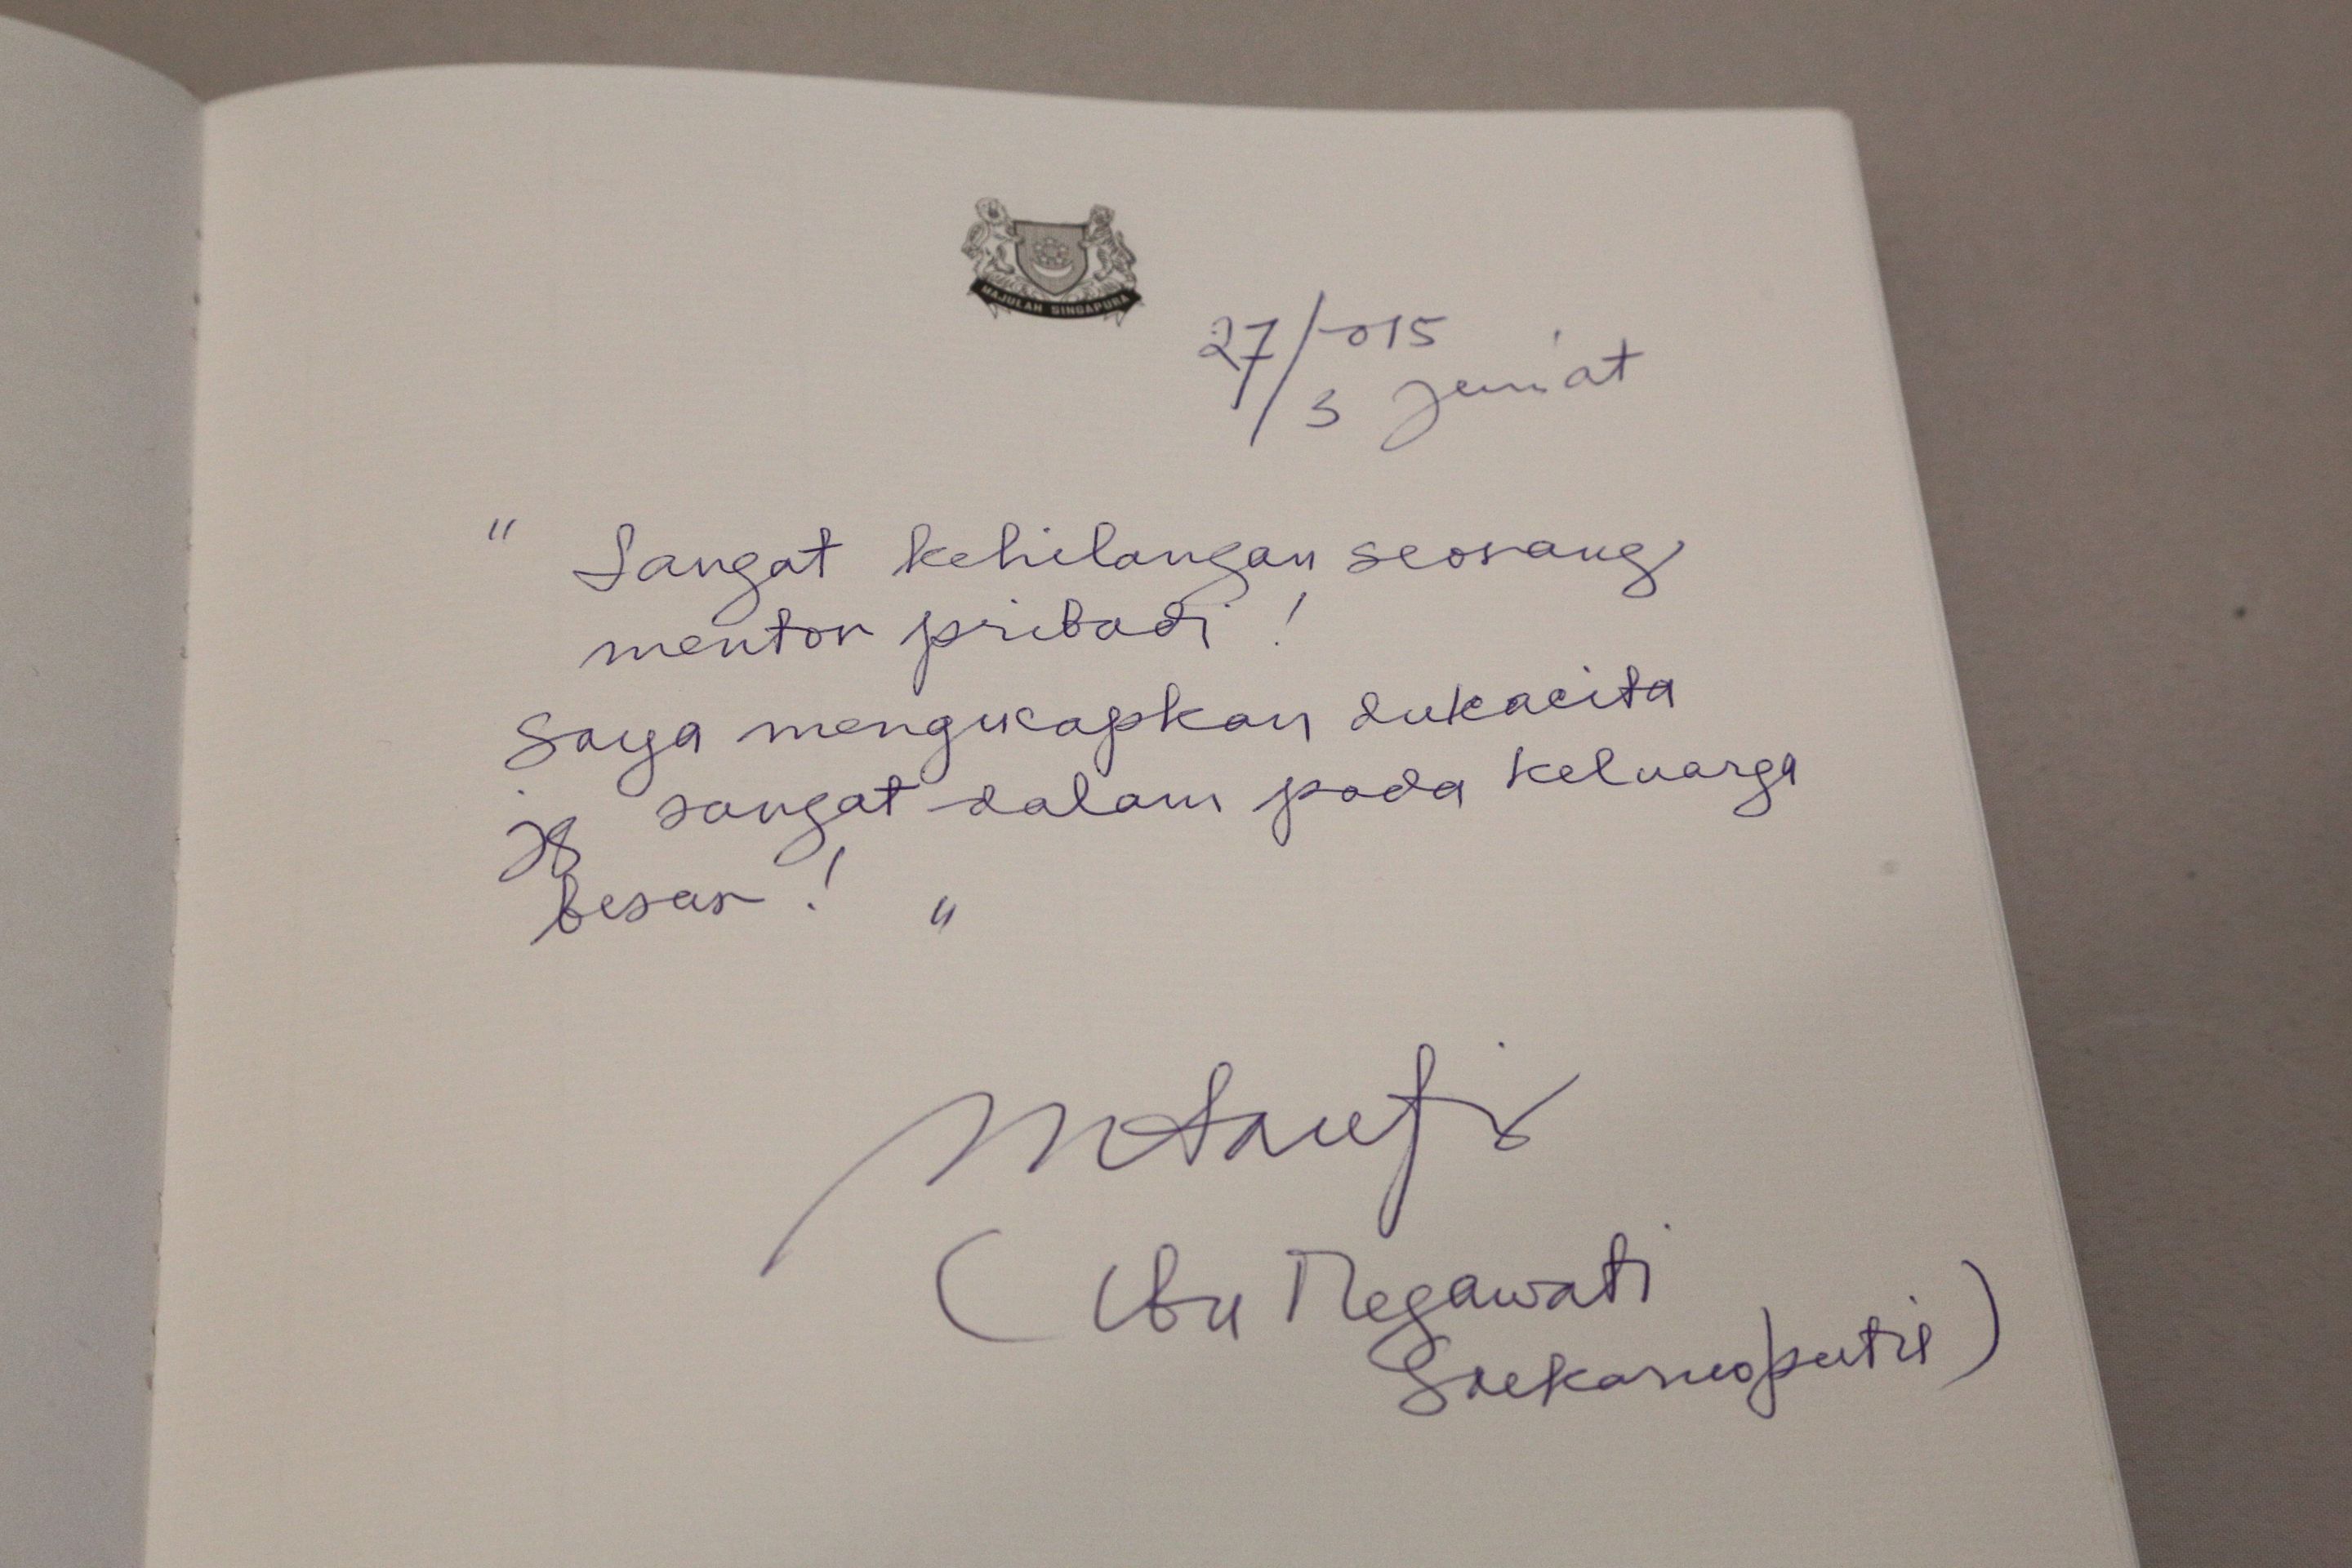 MAJULAH SINGAPURA
27/2015
3 Jum'at
" Sangat kehilangan seorang
mentor pribadi !
Saya mengucapkan dukacita
yg sangat dalam pada keluarga
besar ! "
(Ibu Megawati
Soekarnoputri)